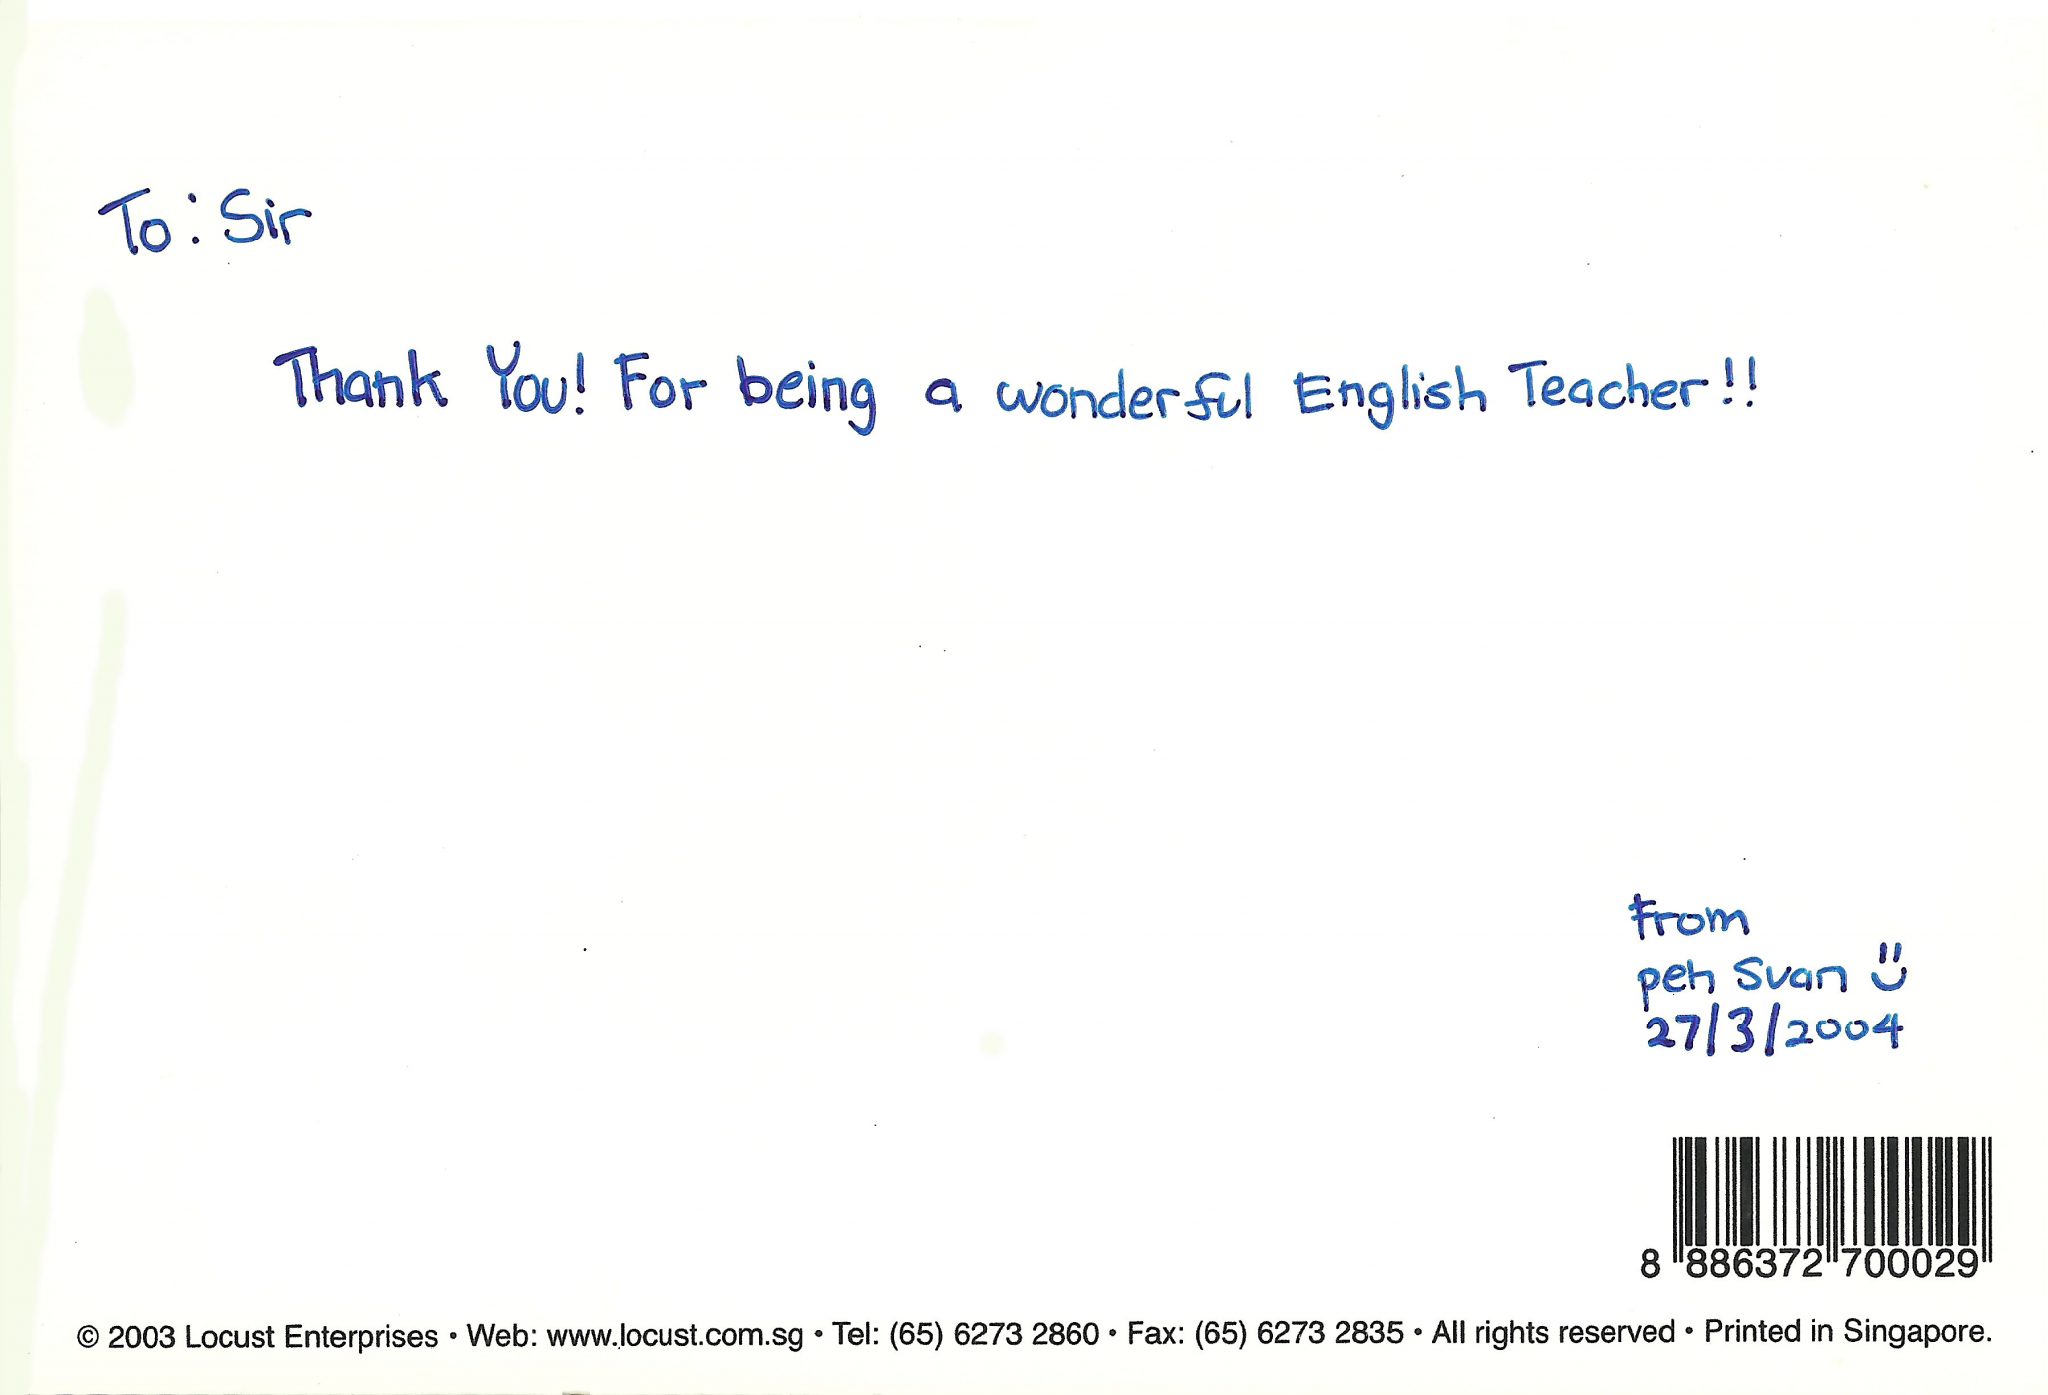 To: Sir
Thank You! For being a wonderful English Teacher!!
From
peh Svan
27/3/2004
8 886372 700029
© 2003 Locust Enterprises • Web: www.locust.com.sg • Tel: (65) 6273 2860 • Fax: (65) 6273 2835 • All rights reserved • Printed in Singapore.